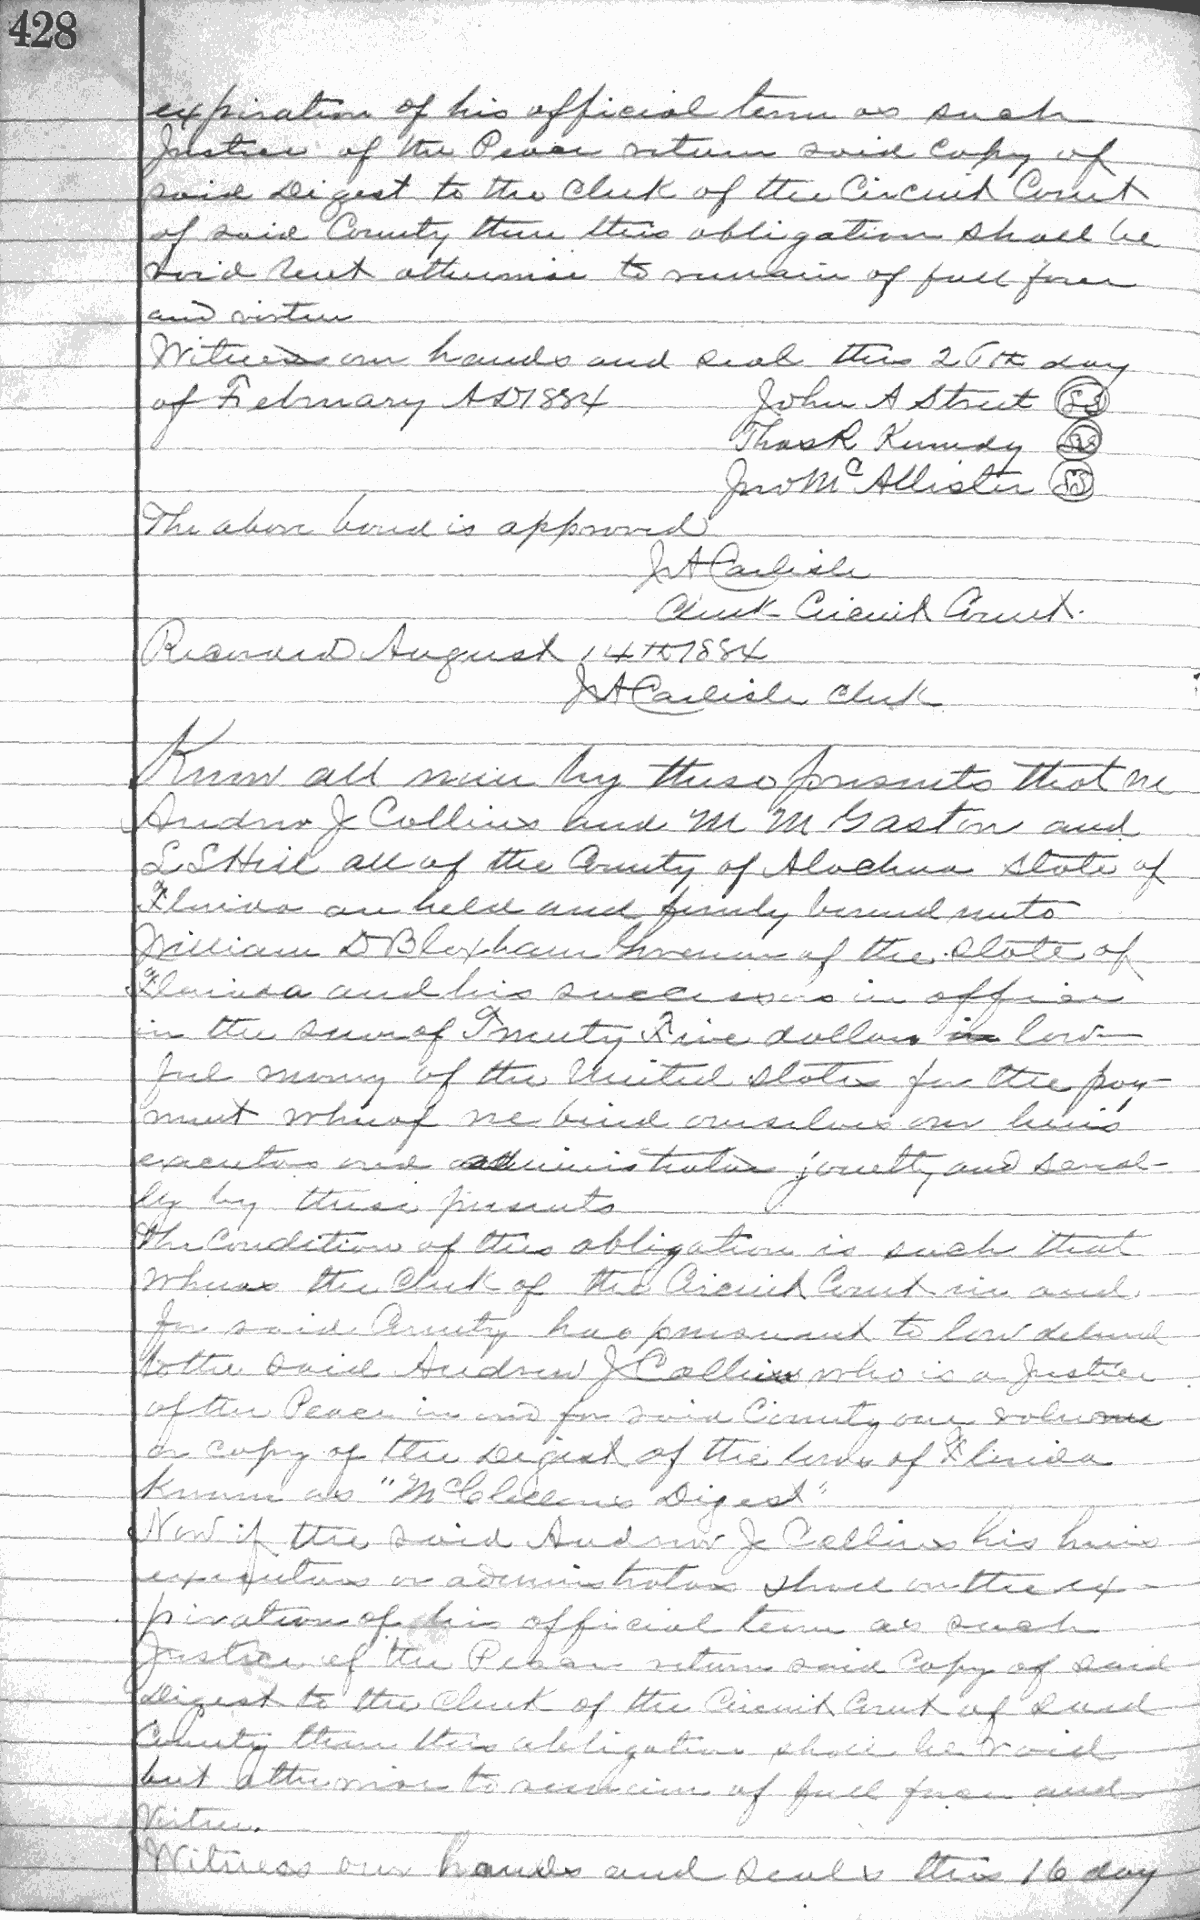 428
expiration of his official term as such
Justice of the Peace return said copy of
said Digest to the Clerk of the Circuit Court
of said County then this obligation shall be
void but otherwise to remain of full force
and virtue
Witness our hands and seal this 26th day
of February AD 1884 John A Street SS
Thos R Kennedy SS
Jno McAllister SS
The above bond is approved
J A Carlisle
Clerk Circuit Court.
Recorded August 14th 1884
J A Carlisle Clerk
Know all men by these presents that we
Andrew J Collins and M M Gaston and
L L Hill all of the County of Alachua State of
Florida are held and firmly bound unto
William D Bloxham Governor of the State of
Florida and his successors in office
in the sum of Twenty Five dollars in law-
ful money of the United States for the pay-
ment whereof we bind ourselves our heirs
executors and administrators jointly and several-
ly by these presents
The Condition of this obligation is such that
Whereas the Clerk of the Circuit Court in and
for said County has pursuant to law delivered
to the said Andrew J Collins who is a Justice
of the Peace in and for said County one volume
or copy of the Digest of the laws of Florida
known as "McClellans Digest"
Now if the said Andrew J Collins his heirs
executors or administrators shall on the ex-
piration of his official term as such
Justice of the Peace return said Copy of said
Digest to the Clerk of the Circuit Court of said
County then this obligation shall be void
but otherwise to remain of full force and
Virtue.
Witness our hands and seals this 16 day